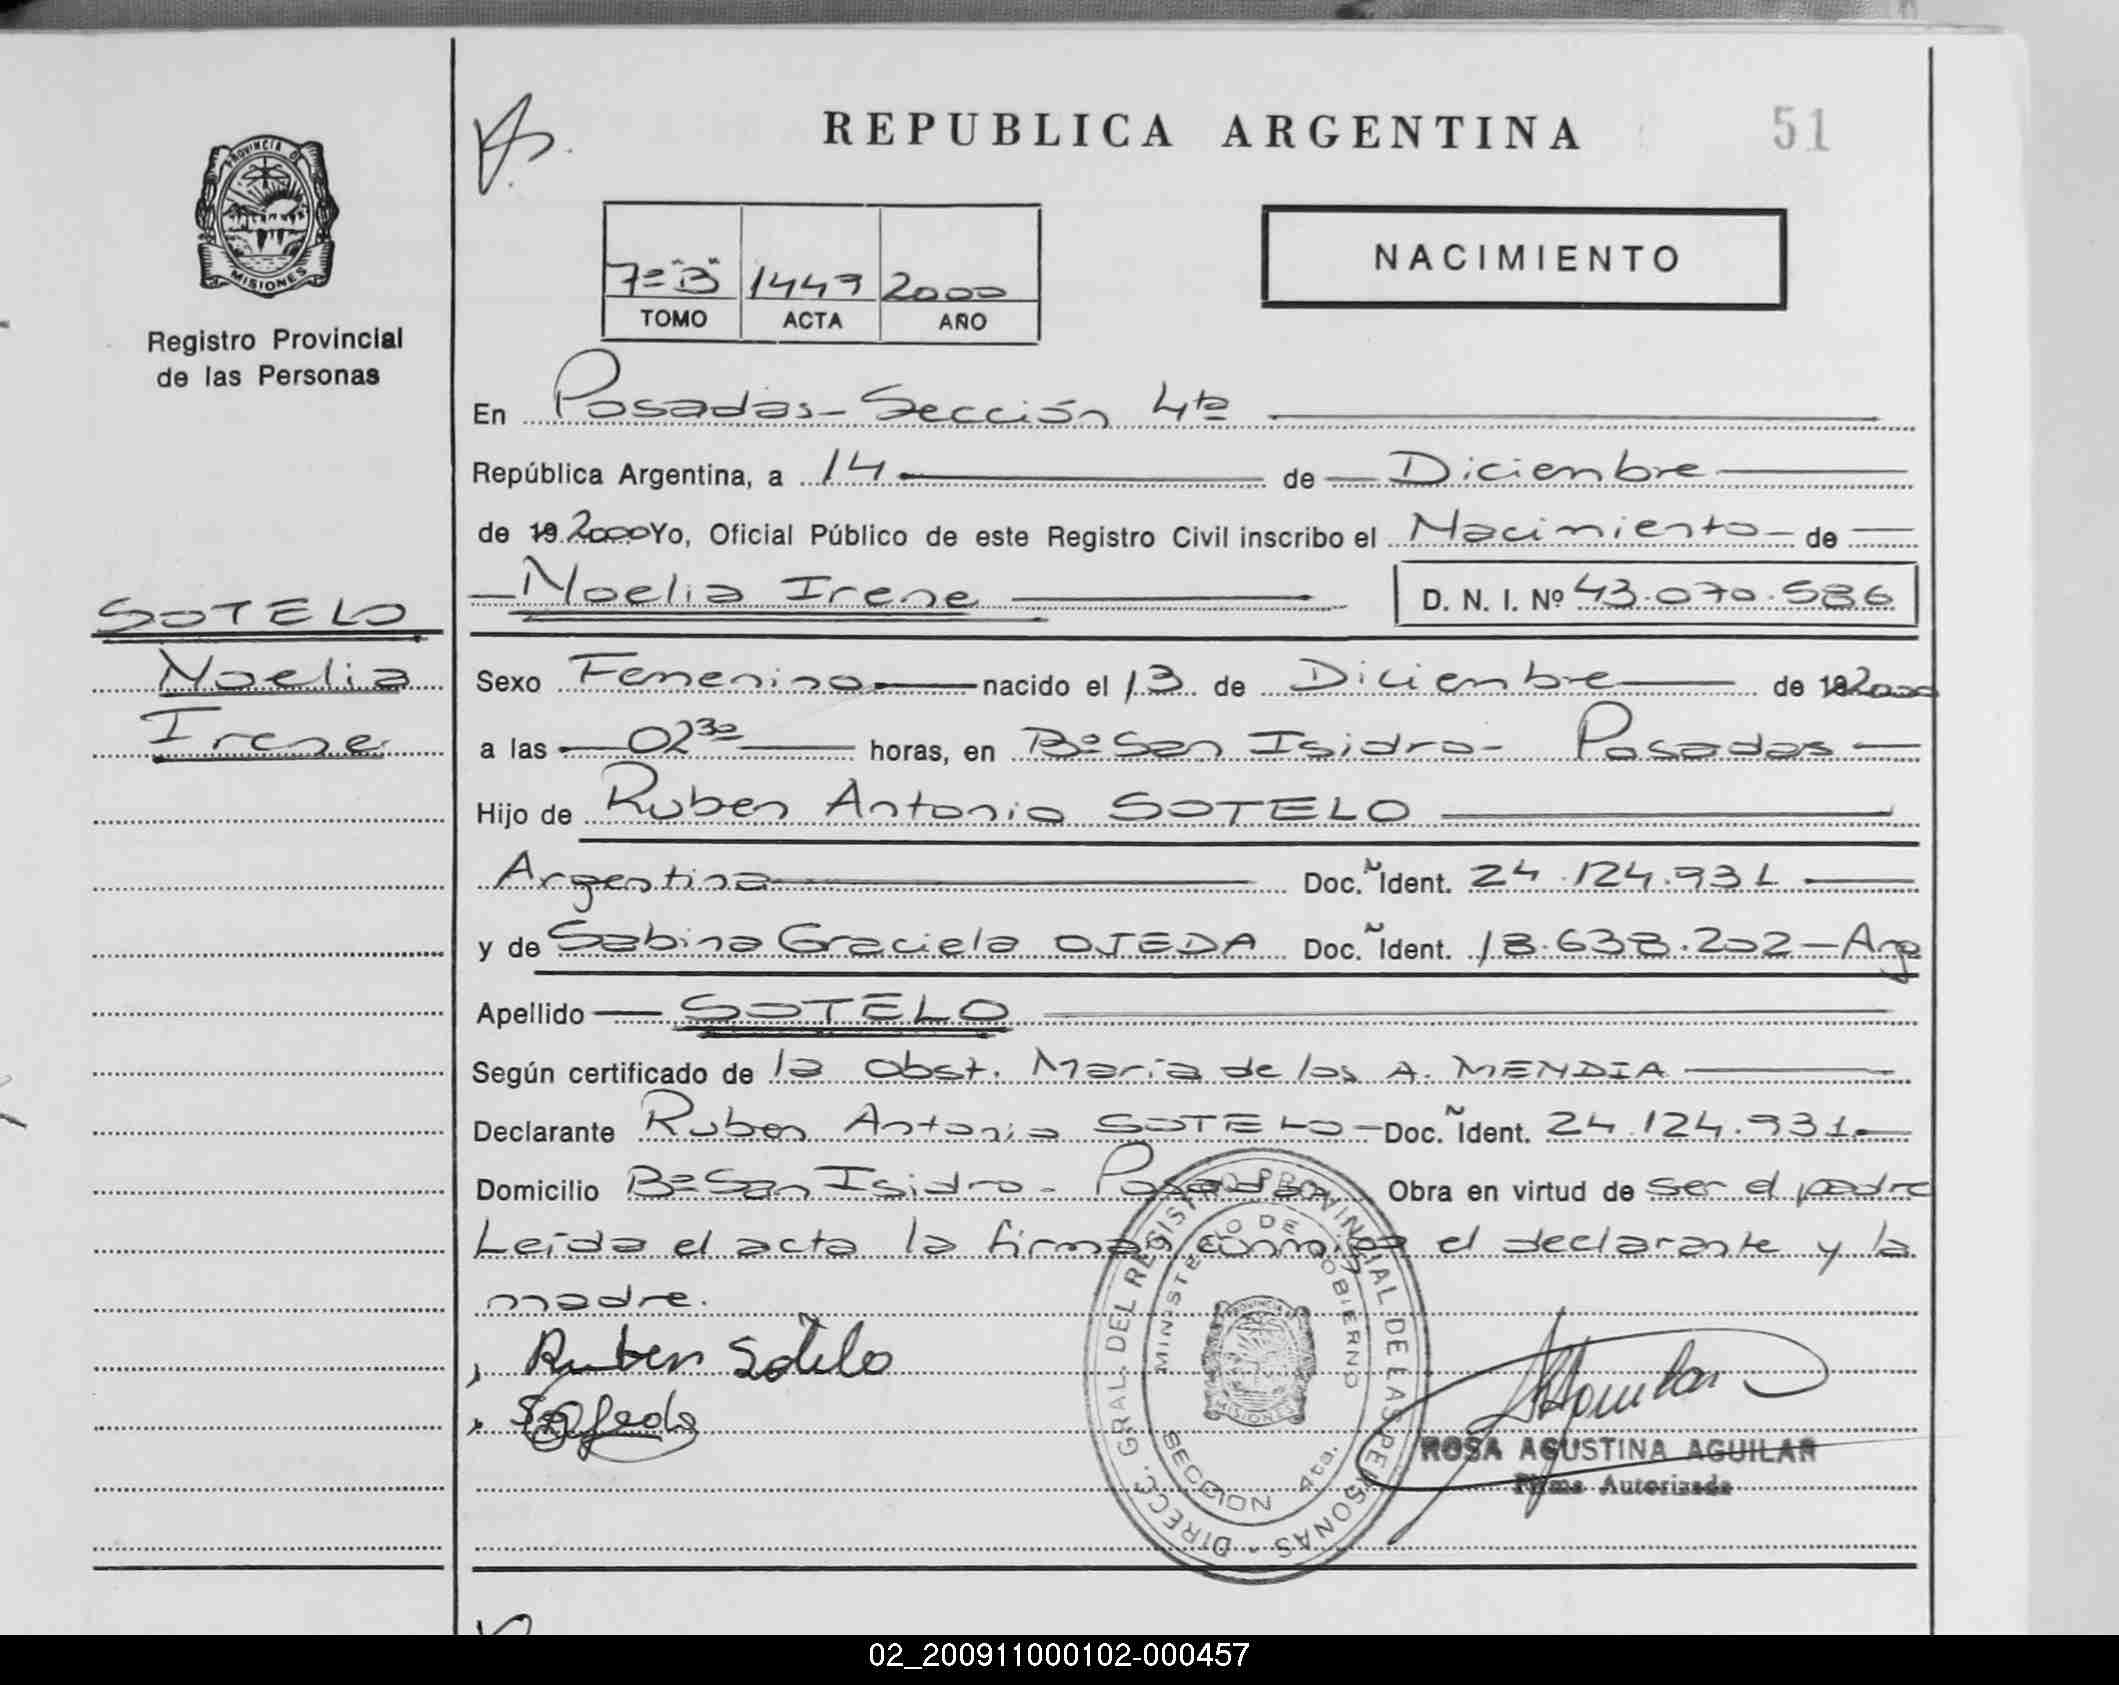 REPUBLICA ARGENTINA
51
PROVINCIA DE
MISIONES
Registro Provincial
de las Personas
7º "B" 1447 2000
TOMO ACTA AÑO
NACIMIENTO
En Posadas - Sección 4ta
República Argentina, a 14 de Diciembre
de 19 2000 Yo, Oficial Público de este Registro Civil inscribo el Nacimiento de
Noelia Irene D. N. I. Nº 43.070.586
SOTELO
Noelia
Irene
Sexo Femenino nacido el 13 de Diciembre de 19 2000
a las 02 30 horas, en Bº San Isidro - Posadas
Hijo de Ruben Antonio SOTELO
Argentina Doc. Ñ Ident. 24.124.931
y de Sabina Graciela OJEDA Doc. Ñ Ident. 18.638.202 - Arg
Apellido SOTELO
Según certificado de la obst. María de los A. MENDIA
Declarante Ruben Antonio SOTELO - Doc. Ñ Ident. 24.124.931
Domicilio Bº San Isidro - Posadas Obra en virtud de ser el padre
Leída el acta la firman conmigo el declarante y la
madre.
Ruben Sotelo
DIRECC. GRAL. DEL REGISTRO PROVINCIAL DE LAS PERSONAS -
MINISTERIO DE GOBIERNO
PROVINCIA
MISIONES
SECCION 4ta.
ROSA AGUSTINA AGUILAR
Firma Autorizada
02_200911000102-000457